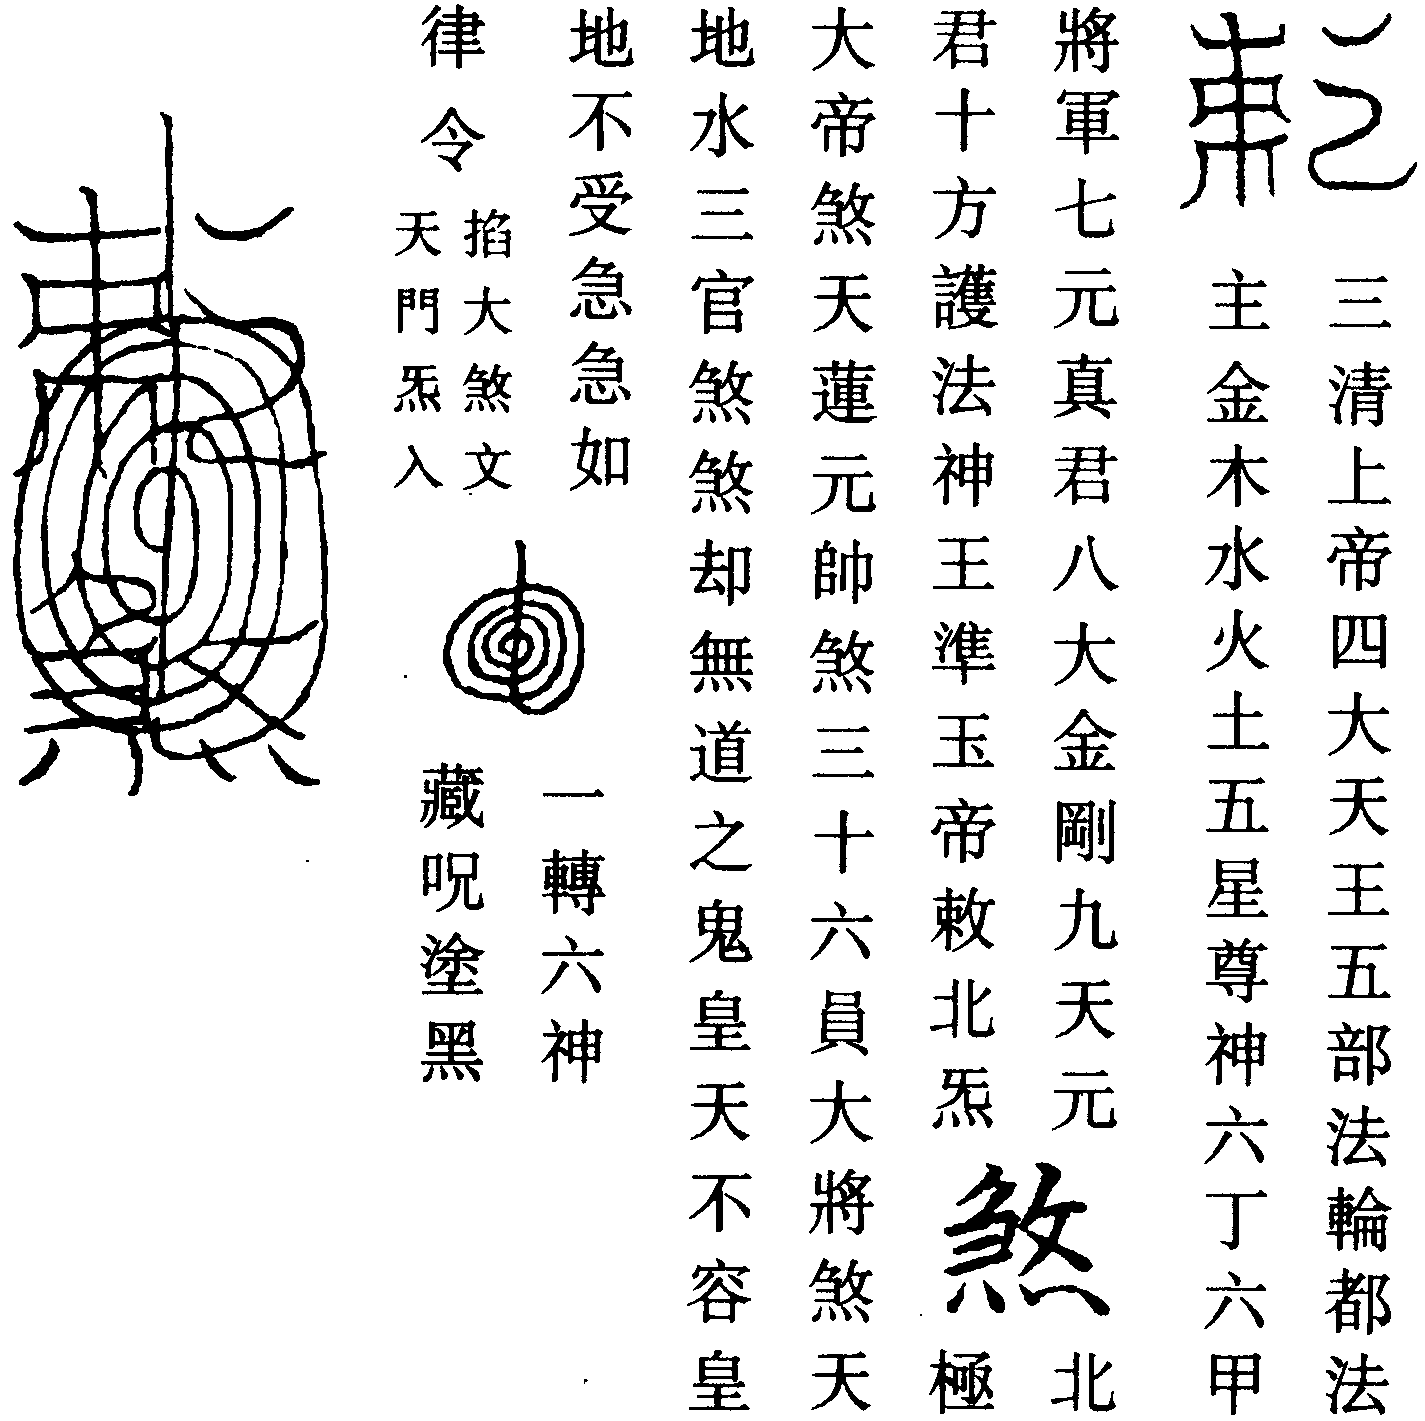 三清上帝四大天王五部法輪都法
主金木水火土五星尊神六丁六甲
將軍七元真君八大金剛九天元
君十方護法神王準玉帝敕北炁
煞
北
極
大帝煞天蓮元帥煞三十六員大將煞天
地水三官煞煞却無道之鬼皇天不容皇
地不受急急如
律令
掐大煞文
天門炁入
一轉六神
藏呪塗黑